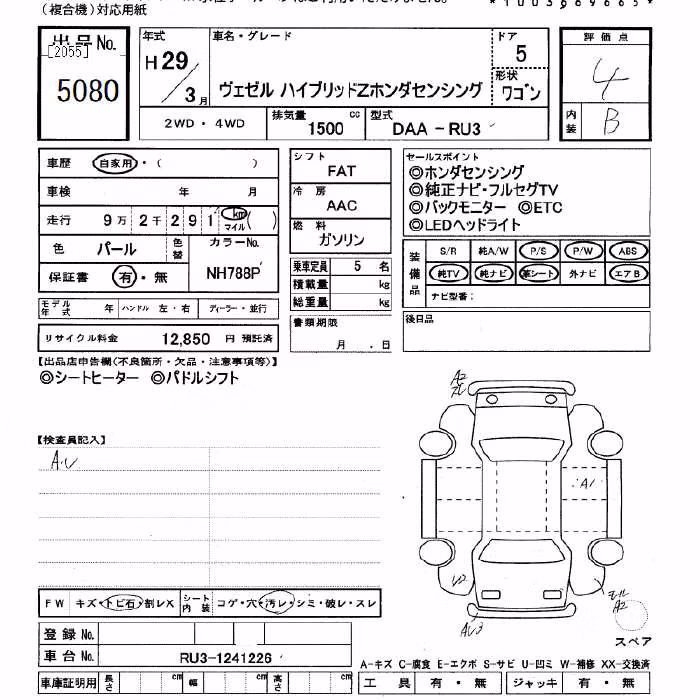 (複合機)対応用紙
*1003969665*
出品No.
[2055]
5080
年式
H29
3月
車名・グレード
ヴェゼル ハイブリッドZホンダセンシング
ドア
5
形状
ワゴン
評価点
4
内装
B
2WD・4WD
排気量
1500 cc
型式
DAA-RU3
車歴 自家用・( )
車検 年 月
走行 9万2千291 km マイル ( )
色 パール 色替 カラーNo.
保証書 有・無 NH788P
シフト
FAT
冷房
AAC
燃料
ガソリン
乗車定員 5 名
積載量 kg
総重量 kg
セールスポイント
◎ホンダセンシング
◎純正ナビ・フルセグTV
◎バックモニター ◎ETC
◎LEDヘッドライト
装備品 S/R 純A/W P/S P/W ABS
純TV 純ナビ 革シート 外ナビ エアB
ナビ型番:
モデル年式 年 ハンドル 左・右 ディーラー・並行
リサイクル料金 12,850 円 預託済
書類期限
月 . 日
後日品
【出品店申告欄(不良箇所・欠品・注意事項等)】
◎シートヒーター ◎パドルシフト
【検査員記入】
A.U
A2
A1
U2
A2
AU3
FW キズ・トビ石・割レX シート内装 コゲ・穴・汚レ・シミ・破レ・スレ
スペア
登録No.
車台No. RU3-1241226
A-キズ C-腐食 E-エクボ S-サビ U-凹ミ W-補修 XX-交換済
車庫証明用 長さ cm 幅 cm 高さ cm
工具 有・無 ジャッキ 有・無